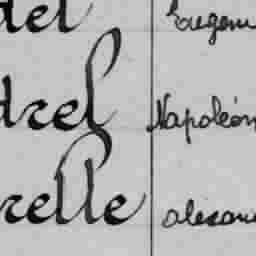 del Eugen
drel Napoléon
relle alexan